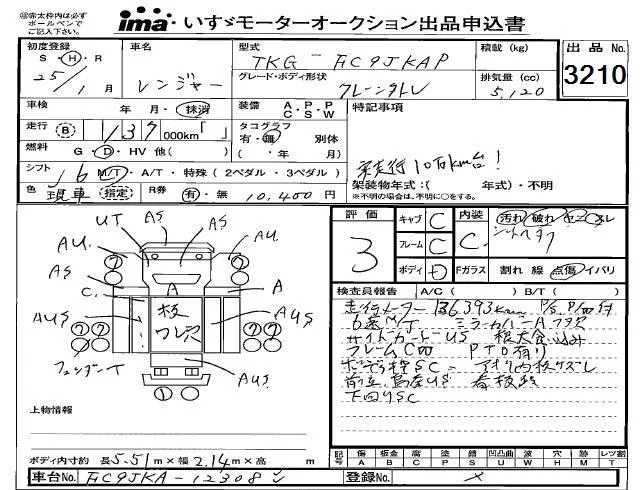 ㊟赤太枠内は必ず
ボールペンで
ご記入下さい。
ima いすゞモーターオークション出品申込書
初度登録 車名 型式 積載 (kg) 出品No.
S・H・R TKG-FC9JKAP
25/1月 レンジャー グレード・ボディ形状 排気量 (cc) 3210
クレーン 5,120
車検 年・月・抹消 装備 A・P・P 特記事項
C・S・W
走行 B 137 000km「 」 タコグラフ
有・無 別体
燃料 G・D・HV 他( ) ( ・ 年・ 月)
実走行10万km台!
シフト 6 M/T・A/T・特殊 (2ペダル・3ペダル)
架装物年式:( 年式)・不明
※不明の場合は、不明に○をする。
色 現車 (指定) R券 有・無 10,400円
評価 キャブ C 内装 汚れ 破れ ヤニ スレ
3 フレーム C C
ボディ D Fガラス 割れ 線 点傷 イバリ
検査員報告 A/C ( ) B/T ( )
走行メーター136393km P/S P/W付
6速M/T ミラーカバーAフタ欠
サイドガードUS
フレームC凹 PTO有り
下回りSC
UT AS AS
AU. AU.
AS A A
C.
AUS 板 AUS
ワレ穴
フェンダーT AUS
上物情報
ボディ内寸約 長 5.51m×幅 2.14m×高 m
記号 傷 板金 腐 塗 錆 凹凸曲 波 穴 跡 レツ割
A B C P S U W H M T
車台No. FC9JKA-12308 登録No.